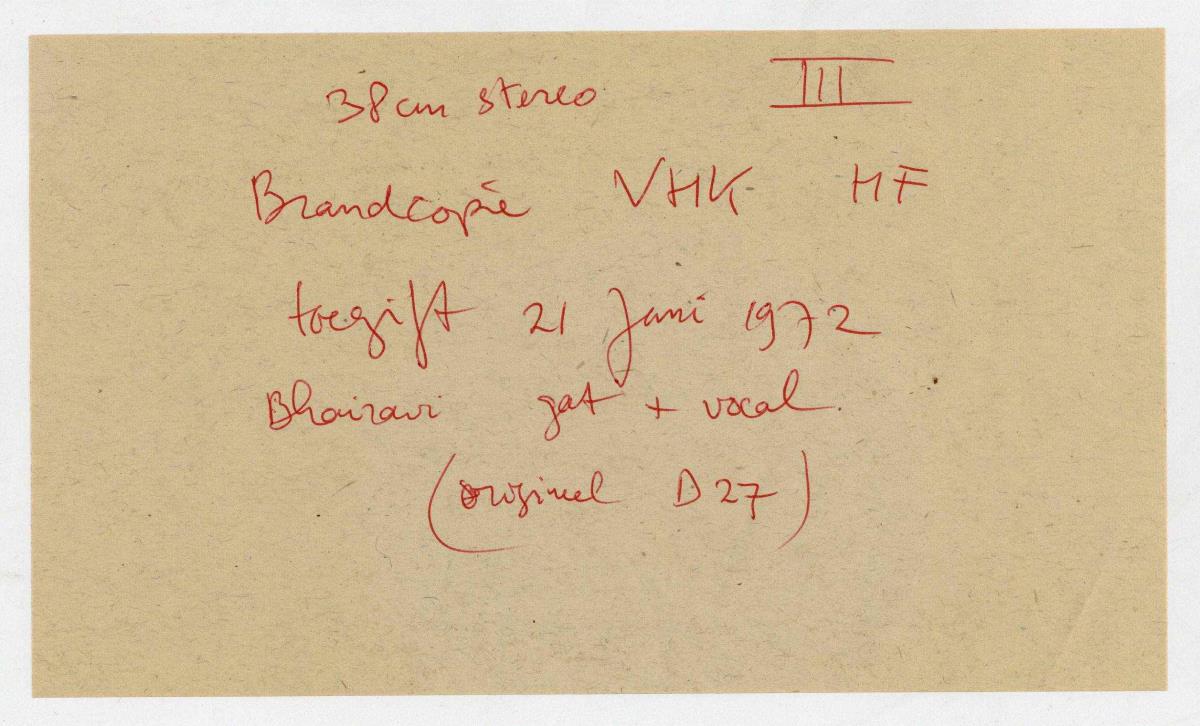 38 cm stereo III
Brandcopie VHK HF
toegift 21 Juni 1972
Bhairavi gat + vocal
(origineel D 27)